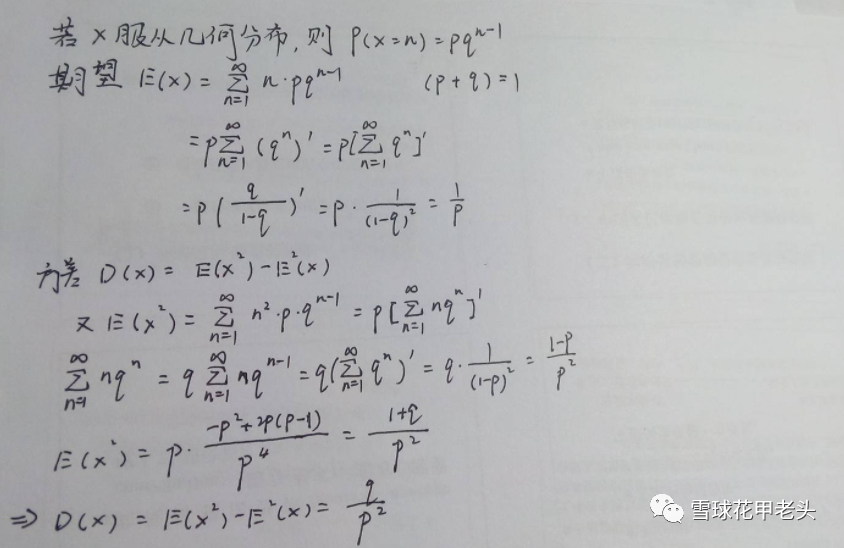 若 X 服从几何分布,则 P(X=n)=pq^{n-1}
期望 E(X) = \sum_{n=1}^{∞} n·pq^{n-1} (p+q)=1
= p\sum_{n=1}^{∞} (q^n)' = p[\sum_{n=1}^{∞} q^n]'
= p(\frac{q}{1-q})' = p·\frac{1}{(1-q)^2} = \frac{1}{p}
方差 D(X) = E(X^2)-E^2(X)
又 E(X^2) = \sum_{n=1}^{∞} n^2·p·q^{n-1} = p[\sum_{n=1}^{∞} nq^n]'
\sum_{n=1}^{∞} nq^n = q\sum_{n=1}^{∞} nq^{n-1} = q(\sum_{n=1}^{∞} q^n)' = q·\frac{1}{(1-p)^2} = \frac{1-p}{p^2}
E(X^2) = p·\frac{-p^2+2p(p-1)}{p^4} = \frac{1+q}{p^2}
⇒ D(X) = E(X^2)-E^2(X) = \frac{q}{p^2}
雪球花甲老头